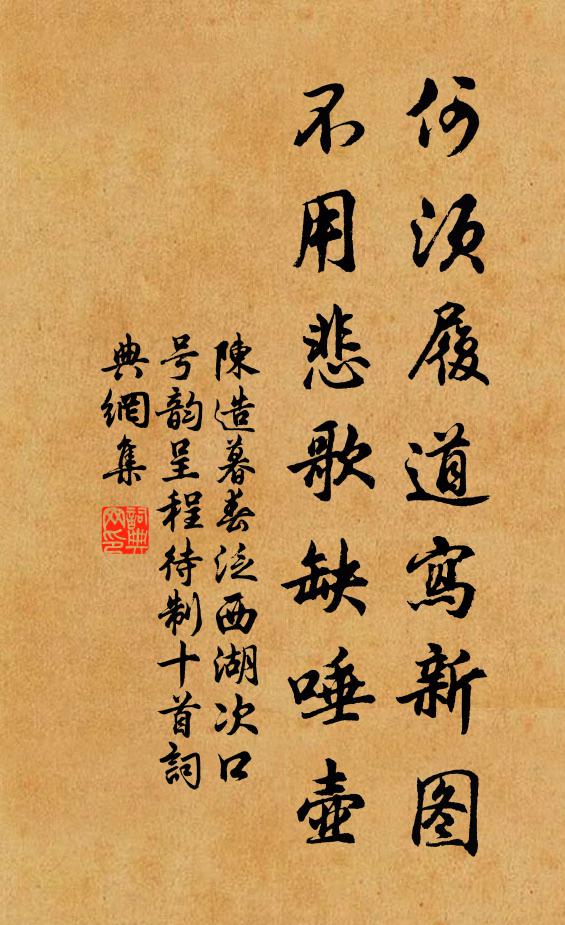 何须履道寫新图
不用悲歌缺唾壺
陳造暮春泛西湖次口
号韵呈程待制十首詞
典網集
詞典網印